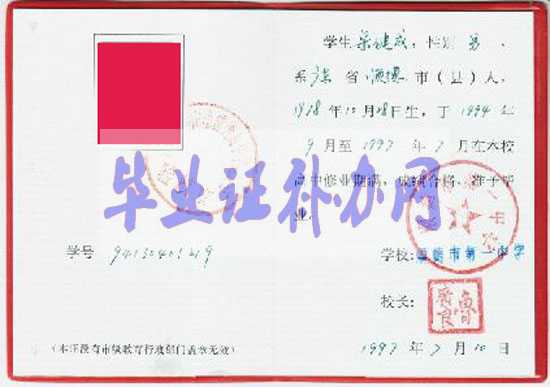 学生 梁健成，性别 男 、
系 广东 省 顺德 市（县）人，
1978 年 10 月 28 日生，于 1994 年
9 月至 1997 年 7 月在本校
高中修业期满，成绩合格，准予毕
业。
毕业证补办网
学号
学校：顺德市第一中学
校长：
1997 年 7 月 10 日
（本证没有市级教育行政部门盖章无效）